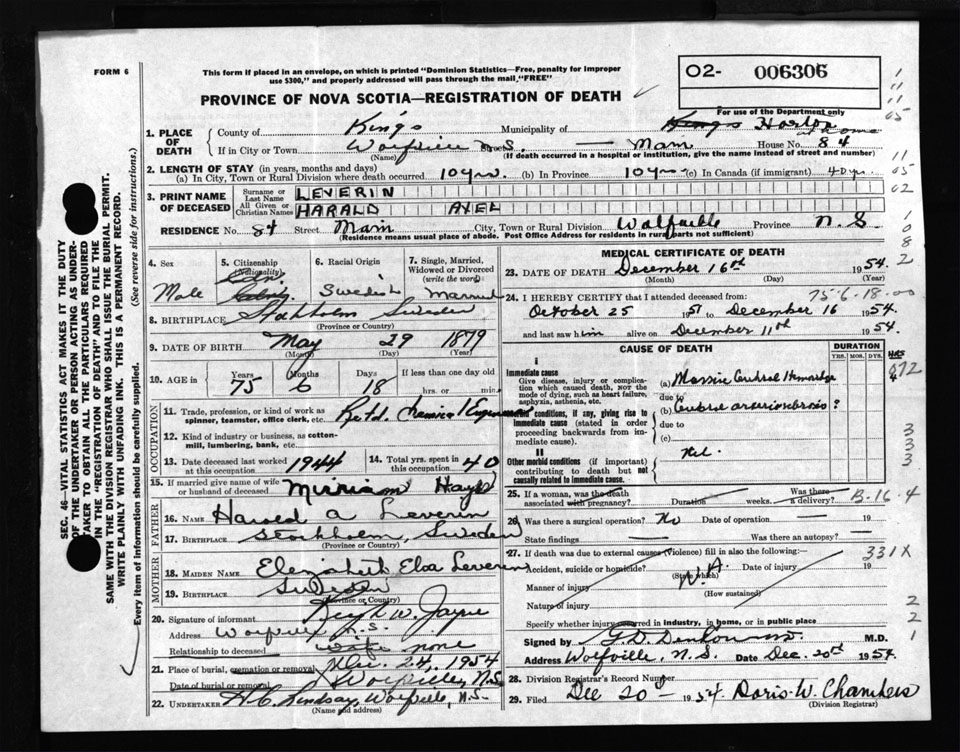 FORM 6
This form if placed in an envelope, on which is printed "Dominion Statistics—Free, penalty for improper
use $300," and properly addressed will pass through the mail, "FREE"
O2- 006306
For use of the Department only
PROVINCE OF NOVA SCOTIA—REGISTRATION OF DEATH
1. PLACE OF DEATH
County of Kings Municipality of Kings Horton
If in City or Town Wolfville N.S. Street — Main House No. 84 at home
(Name) (If death occurred in a hospital or institution, give the name instead of street and number)
2. LENGTH OF STAY (in years, months and days)
(a) In City, Town or Rural Division where death occurred 10 yrs. (b) In Province 10 yrs (c) In Canada (if immigrant) 40 yrs.
3. PRINT NAME OF DECEASED
Surname or Last Name LEVERIN
All Given or Christian Names HARALD AXEL
RESIDENCE No. 84 Street Main City, Town or Rural Division Wolfville Province N S
(Residence means usual place of abode. Post Office Address for residents in rural parts not sufficient)
4. Sex
Male
5. Citizenship
(Nationality)
Cdn.
6. Racial Origin
Swedish
7. Single, Married, Widowed or Divorced
(write the word)
Married
8. BIRTHPLACE Stockholm Sweden
(Province or Country)
9. DATE OF BIRTH May 29 1879
(Month) (Day) (Year)
10. AGE in Years Months Days If less than one day old
75 6 18 hrs. or min.
OCCUPATION
11. Trade, profession, or kind of work as
spinner, teamster, office clerk, etc. Retd. Chemical Engineer
12. Kind of industry or business, as cotton-
mill, lumbering, bank, etc.
13. Date deceased last worked at this occupation 1944
14. Total yrs. spent in this occupation 40
15. If married give name of wife or husband of deceased Miriam Hayes
FATHER
16. NAME Harold A Leverin
17. BIRTHPLACE Stockholm, Sweden
(Province or Country)
MOTHER
18. MAIDEN NAME Elenzhult Eloa Leverin
19. BIRTHPLACE Sweden
(Province or Country)
20. Signature of informant W. Jayne
Address Wolfville N.S.
Relationship to deceased none
21. Place of burial, cremation or removal Dec. 24, 1954
Date of burial or removal Wolfville, N.S.
22. UNDERTAKER H.C. Lindsay, Wolfville, N.S.
(Name and address)
MEDICAL CERTIFICATE OF DEATH
23. DATE OF DEATH December 16th 1954.
(Month) (Day)
75-6-18-00
24. I HEREBY CERTIFY that I attended deceased from:
October 25 1951 to December 16 1954.
and last saw him alive on December 11th 1954.
CAUSE OF DEATH
DURATION
YRS. MOS. DYS. HRS
I
Immediate cause
Give disease, injury or complica-
tion which caused death, NOT the
mode of dying, such as heart failure,
asphyxia, asthenia, etc.
(a) Massive Cerebral Hemorrhage
due to
Morbid conditions, if any, giving rise to
immediate cause (stated in order
proceeding backwards from im-
mediate cause).
(b) Cerebral arteriosclerosis ?
due to
(c)
II
Other morbid conditions (if important)
contributing to death but not
causally related to immediate cause.
Nil.
25. If a woman, was the death associated with pregnancy? Duration weeks. Was there a delivery? B-16-4
26. Was there a surgical operation? No Date of operation — 19
State findings — Was there an autopsy? —
27. If death was due to external causes (violence) fill in also the following:— 331X
Accident, suicide or homicide? Date of injury 19
(State which)
N.A.
Manner of injury
(How sustained)
Nature of injury
Specify whether injury occurred in industry, in home, or in public place
Signed by G.D. Denton M.D.
Address Wolfville, N.S. Date Dec. 20th 1954.
28. Division Registrar's Record Number
29. Filed Dec 20 1954. Doris W. Chambers
(Division Registrar)
SEC. 46—VITAL STATISTICS ACT MAKES IT THE DUTY
OF THE UNDERTAKER OR PERSON ACTING AS UNDER-
TAKER TO OBTAIN ALL THE PARTICULARS REQUIRED
IN THE "REGISTRATION OF DEATH" AND TO FILE THE
SAME WITH THE DIVISION REGISTRAR WHO SHALL ISSUE THE BURIAL PERMIT.
WRITE PLAINLY WITH UNFADING INK. THIS IS A PERMANENT RECORD.
Every item of information should be carefully supplied. (See reverse side for instructions.)